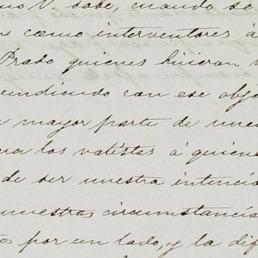 mo V. sabe, cuando se
n como interventores á
Prado quienes hicieran
endiendo con ese obj
mayor parte de nues
los valistas á quiene
de ser nuestra intenció
nuestras circunstancia
por un lado, y la dif